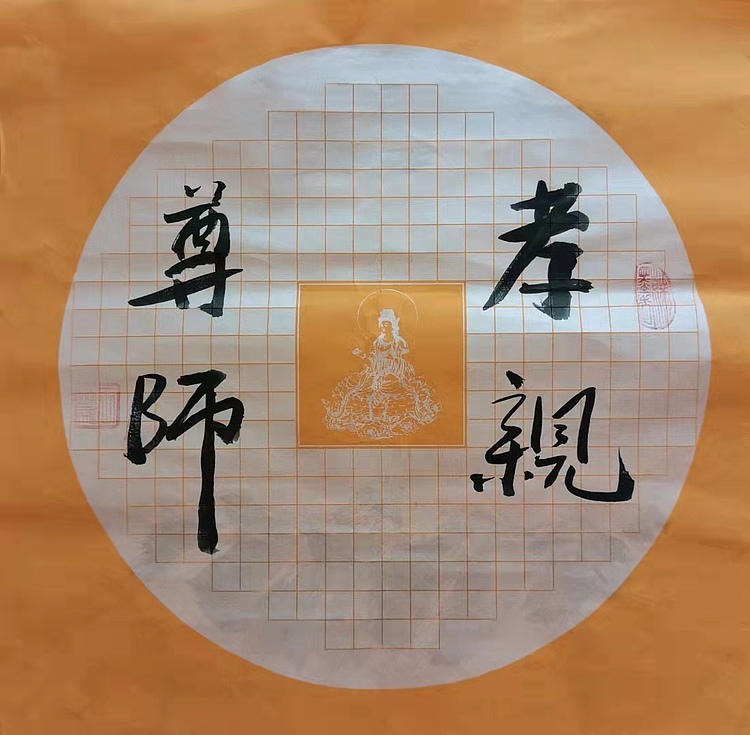 孝親
尊師